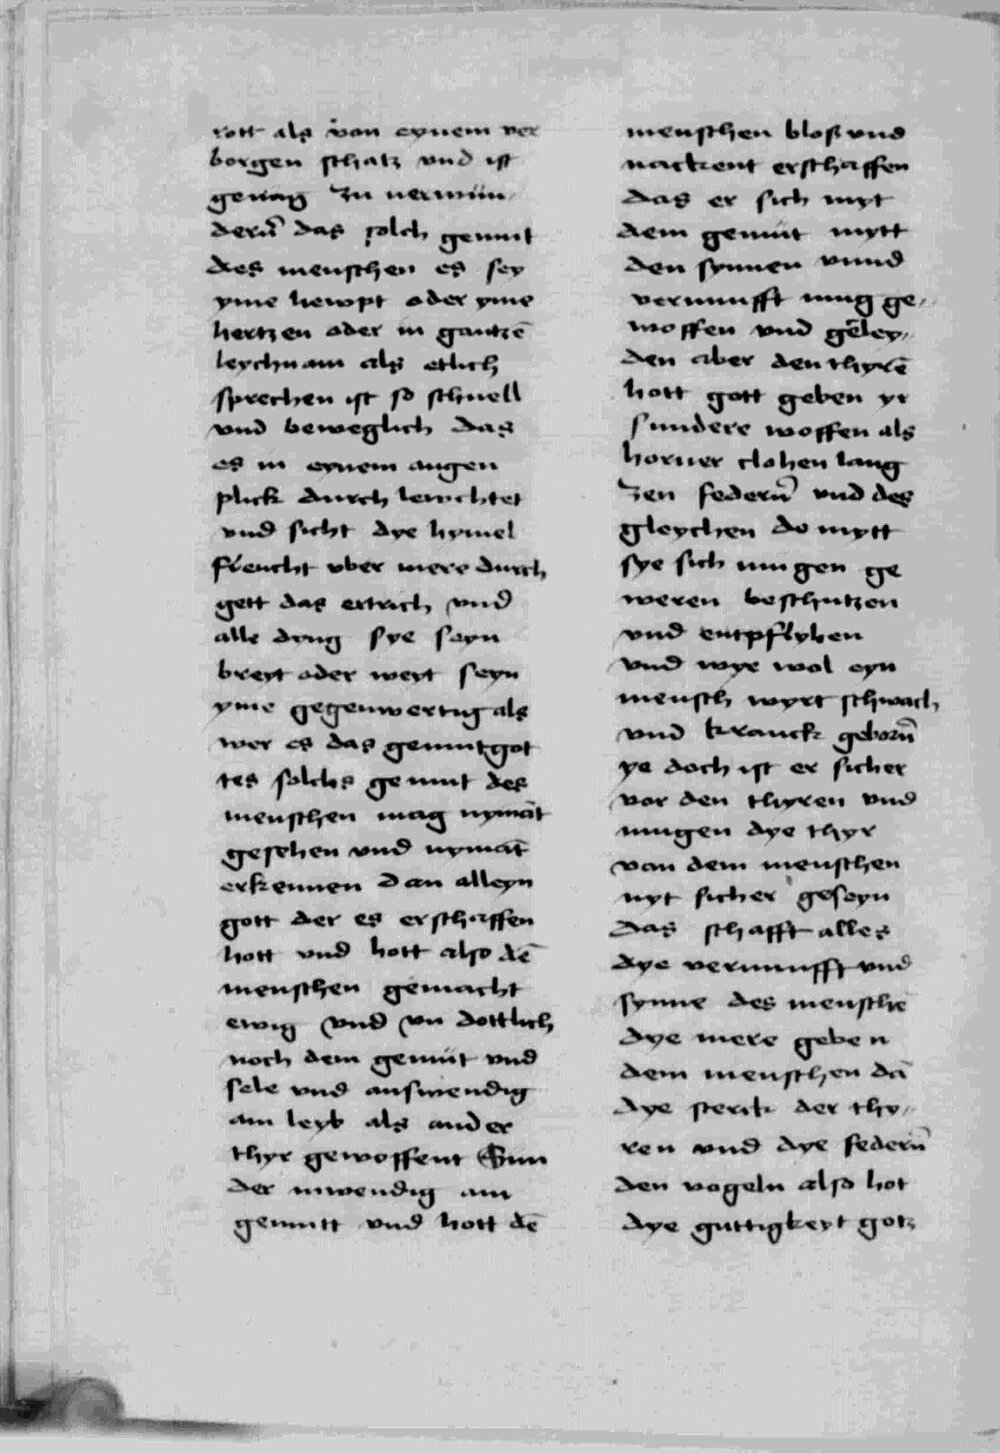 rott als von eynem ver
borgen schatz vnd ist
genug zu verwun⸗
dern̄ das solch gemut
des menschen es sey
yme hewpt oder yme
hertzen oder in gantzē
leychnam als etlich
sprechen ist so schnell
vnd beweglich das
es in eynem augen
plick durch lewchtet
vnd sicht dye hymel
fleucht vber mere durch
gett das ertrich vnd
alle dyng sye seyn
breyt oder weyt seyn
yme gegenwertig als
wer es das gemut got
tes solchs gemut des
menschen mag nymāt
gesehen vnd nymāt
erkennen dan alleyn
gott der es erschaffen
hott vnd hott also dē
menschen gemacht
ewig vnd vn dottlich
noch dem gemüt vnd
sele vnd auswendig
am leyb als ander
thyr gewoffent Sun
der inwendig am
gemutt vnd hott dē
menschen bloß vnd
nackent erschaffen
das er sich myt
dem gemüt mytt
den synnen vnnd
vernunfft mug ge⸗
woffen vnd gēley⸗
den aber den thyrē
hott gott geben yr
sundere woffen als
horner clohen lang
zen federn̄ vnd des
gleychen do mytt
sye sich mugen ge
weren beschutzen
vnd entpflyhen
vnd wye wol eyn
mensch wyrt schwach
vnd kranck geborn̄
ye doch ist er sicher
vor den thyren vnd
mugen dye thyr
von dem menschen
nyt sicher geseyn
das schafft alles
dye vernunfft vnd
synne des menschē
dye mere geben
dem menschen dā
dye sterck der thy⸗
ren vnd dye federn̄
den vogeln also hot
dye guttigkeyt gotz